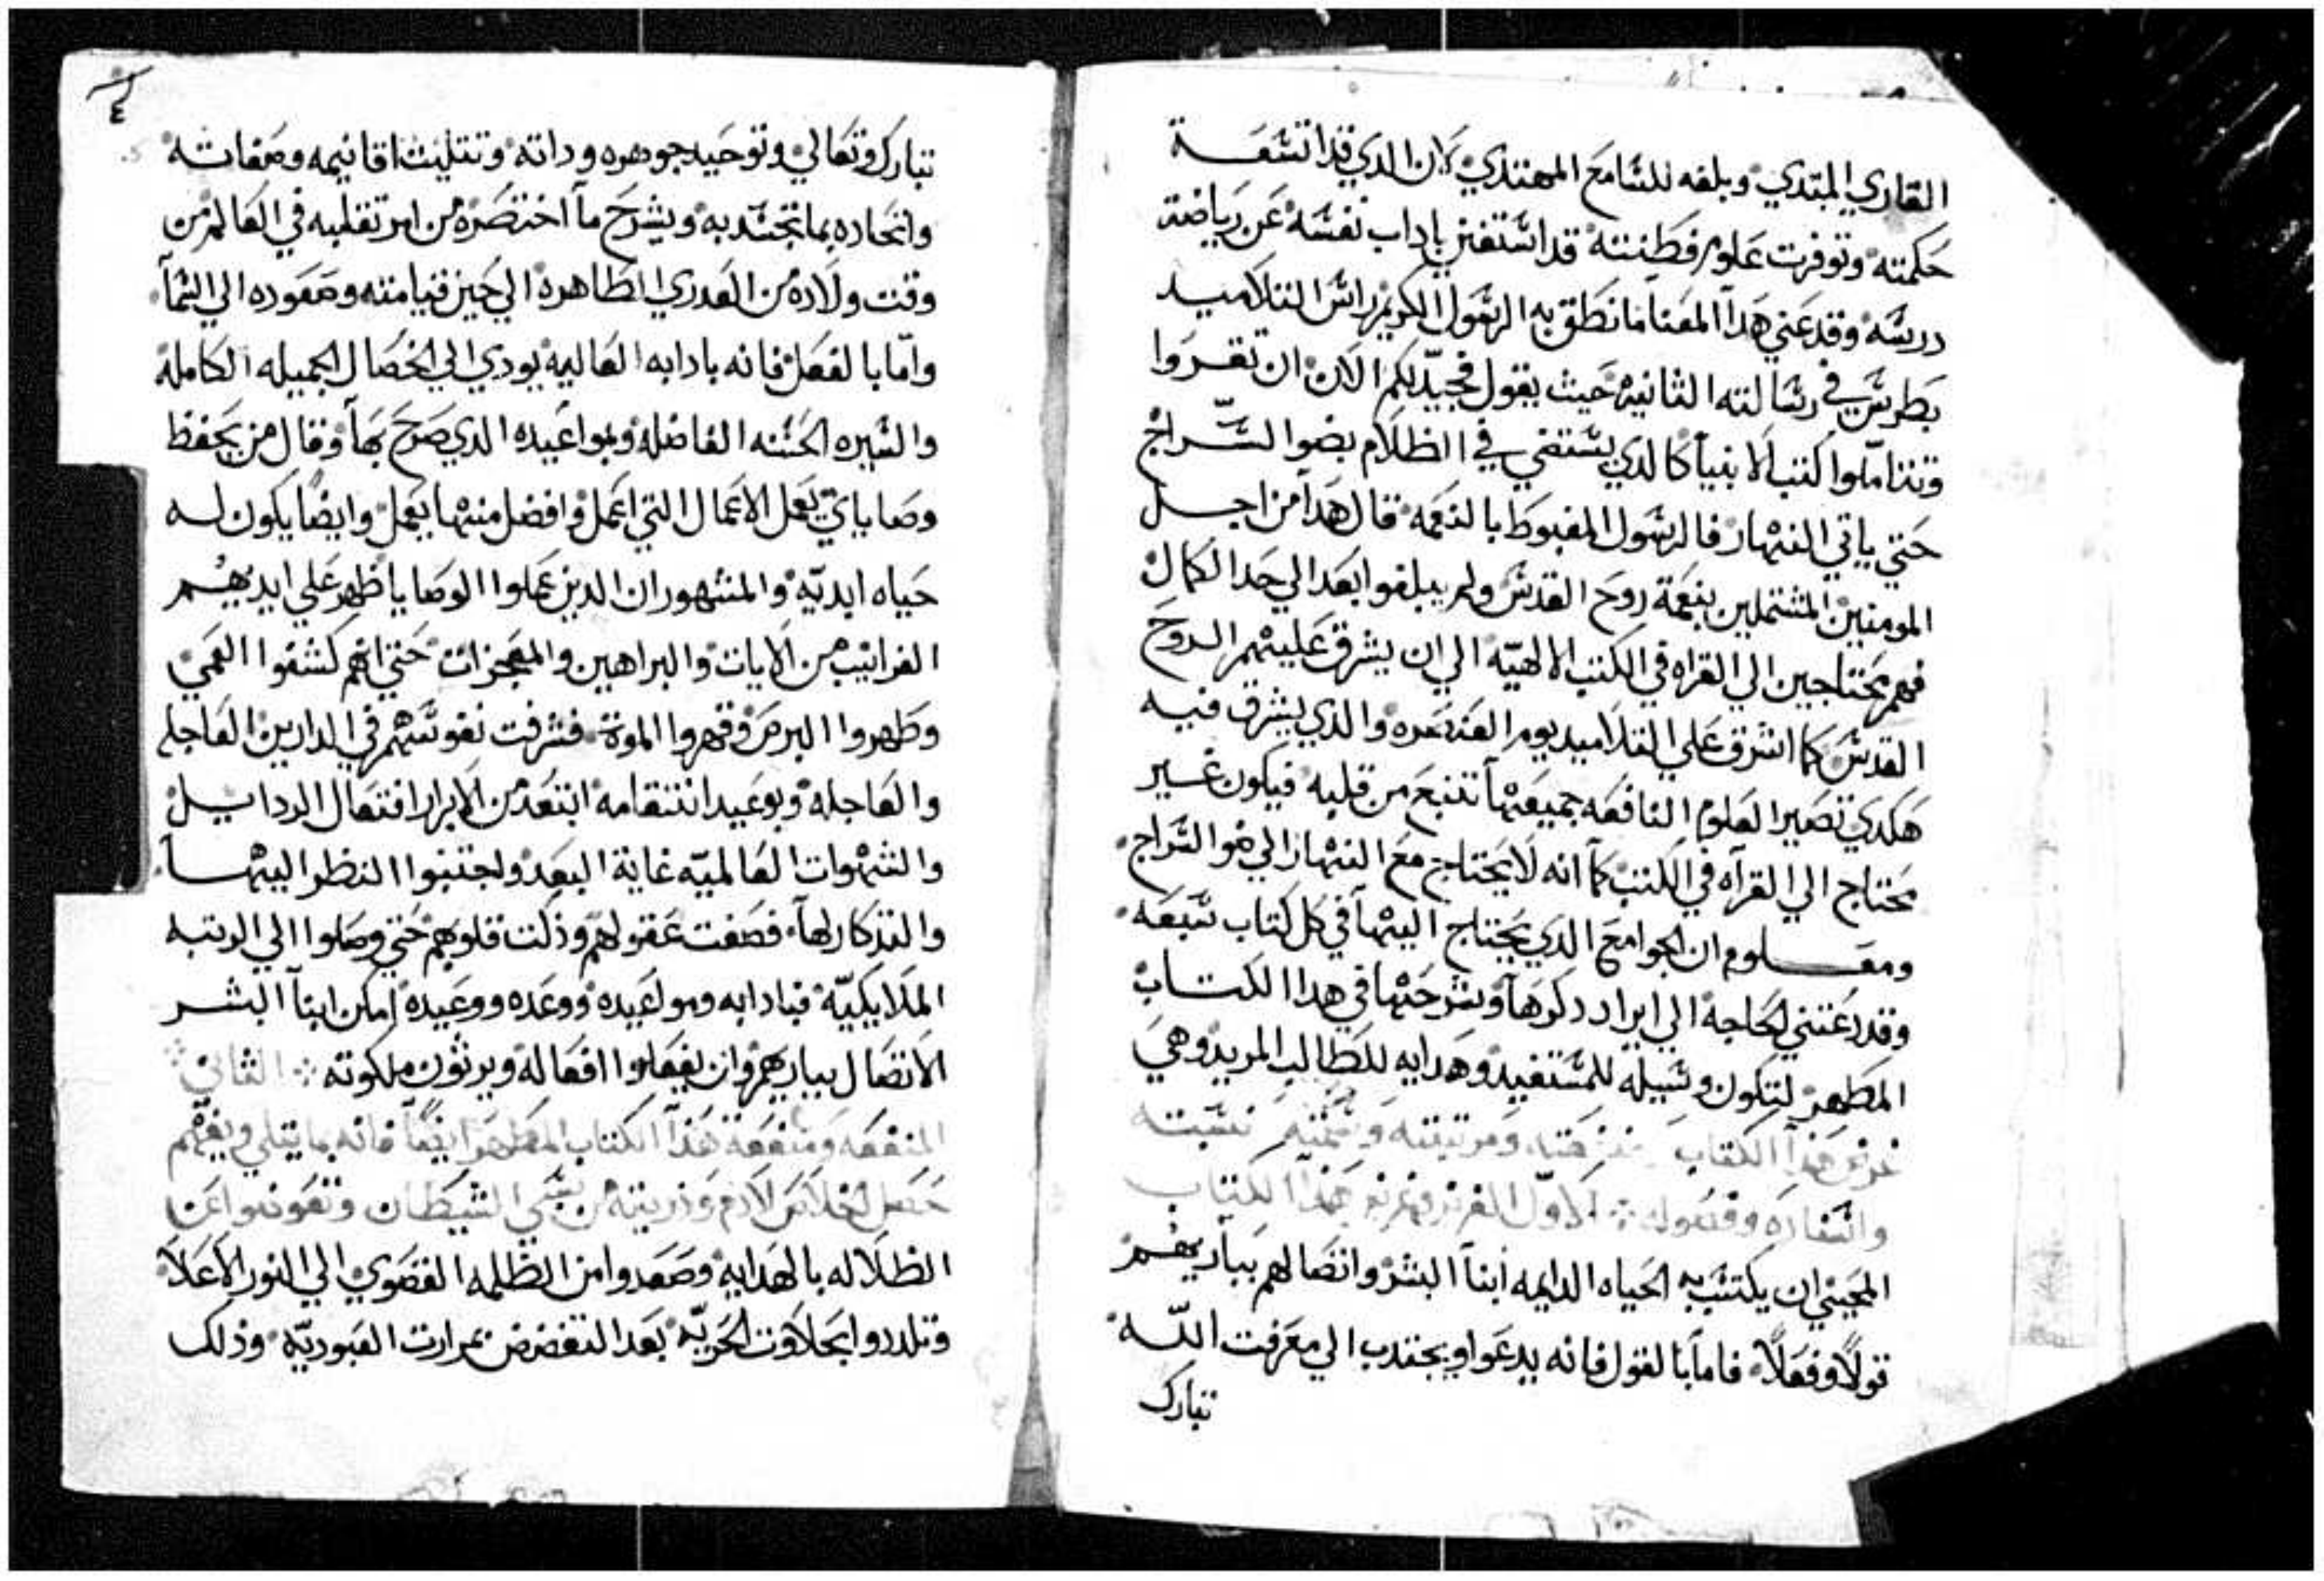 القاري المبتدي وبلغه للسامع المهتدي لان الدي قد اتسعة
حكمته وتوفرت علوم فطنته قد استغني باداب نفسه عن رياضة
درسه وقد عني هدا المعنا ما نطق به الرسول الكريم راس التلاميد
بطرس في رسالته الثانيه حيث يقول فجيد لكم الان ان تقروا
وتتاملوا كتب الانبيا كالدي يستضي في الظلام بضوا السراج
حتي ياتي النهار فالرسول المغبوط بالنعمه قال هدا من اجل
المومنين المشتملين بنعمة روح القدس ولم يبلغوا بعد الي حد الكمال
فهم محتاجين الي القراه في الكتب الالهيه الي ان يشرق عليهم الروح
القدس كما اشرق علي التلاميد يوم العنصره والدي يشرق فيه
هكدي تصير العلوم النافعه جميعها تنبع من قلبه فيكون غير
محتاج الي القرآه في الكتب كما انه لا يحتاج مع النهار الي ضو السراج
ومعلوم ان الجوامع الدي يحتاج اليها في كل كتاب سبعه
وقد دعتني الحاجه الي ايراد دكرها وشرحها في هدا الكتاب
المطهر لتكون وسيله للمستفيد وهدايه للطالب المريد وهي
غرض هدا الكتاب منفعته ومرتبته وسمته نسبته
واشاره وفصوله الاول الغرض وغرض هدا الكتاب
المجيني ان يكتسب به الحياه الدايمه ابنا البشر واتصالهم بباريهم
قولاً وفعلاً فاما بالقول فانه يدعوا ويجتدب الي معرفت الله
تبارك
٤
تبارك وتعالي وتوحيد جوهره وداته وتتليث اقانيمه وصفاته
واتحاده بما تجسد به ويشرح ما اختصره من امر تقلبه في العالم من
وقت ولاده من العدري الطاهره الي حين قيامته وصعوده الي السما
واما بالفعل فانه بادابه العاليه يودي الي الخصال الجميله الكامله
والسيره الحسنه الفاضله وبمواعيده الدي صرح بها وقال من يحفظ
وصاياي يعمل الاعمال التي اعمل وافضل منها يعمل وايضاً يكون له
حياه ابديه والمشهور ان الدين عملوا الوصايا ظهر علي ايديهم
الغرايب من الايات والبراهين والمعجزات حتي انهم كشفوا العمي
وطهروا البرص وقهروا الموت فشرفت نفوسهم في الدارين العاجله
والعاجله وبوعيد انتقامه ابتعد من الابرار افتعال الردايل
والشهوات العالميه غاية البعد ولجتنبوا النظر اليها
والتذكار لها فصفت عقولهم وذكت قلوبهم حتي وصلوا الي الرتبه
الملايكيه فبادابه ومواعيده ووعده ووعيده امكن ابنا البشر
الاتصال بباريهم وان يفعلوا افعاله ويرثون ملكوته الثاني
المنفعه ومنفعة هذا الكتاب المطهر ايضاً فانه بما يتلي ويفهم
حصل الخلاص لادم وذريته من سبي الشيطان وتعوضوا عن
الظلاله بالهدايه وصعدوا من الظلمه القصوي الي النور الاعلا
وتلددوا بحلاوت الحريه بعد التغضض بمرارت العبوديه وذلك